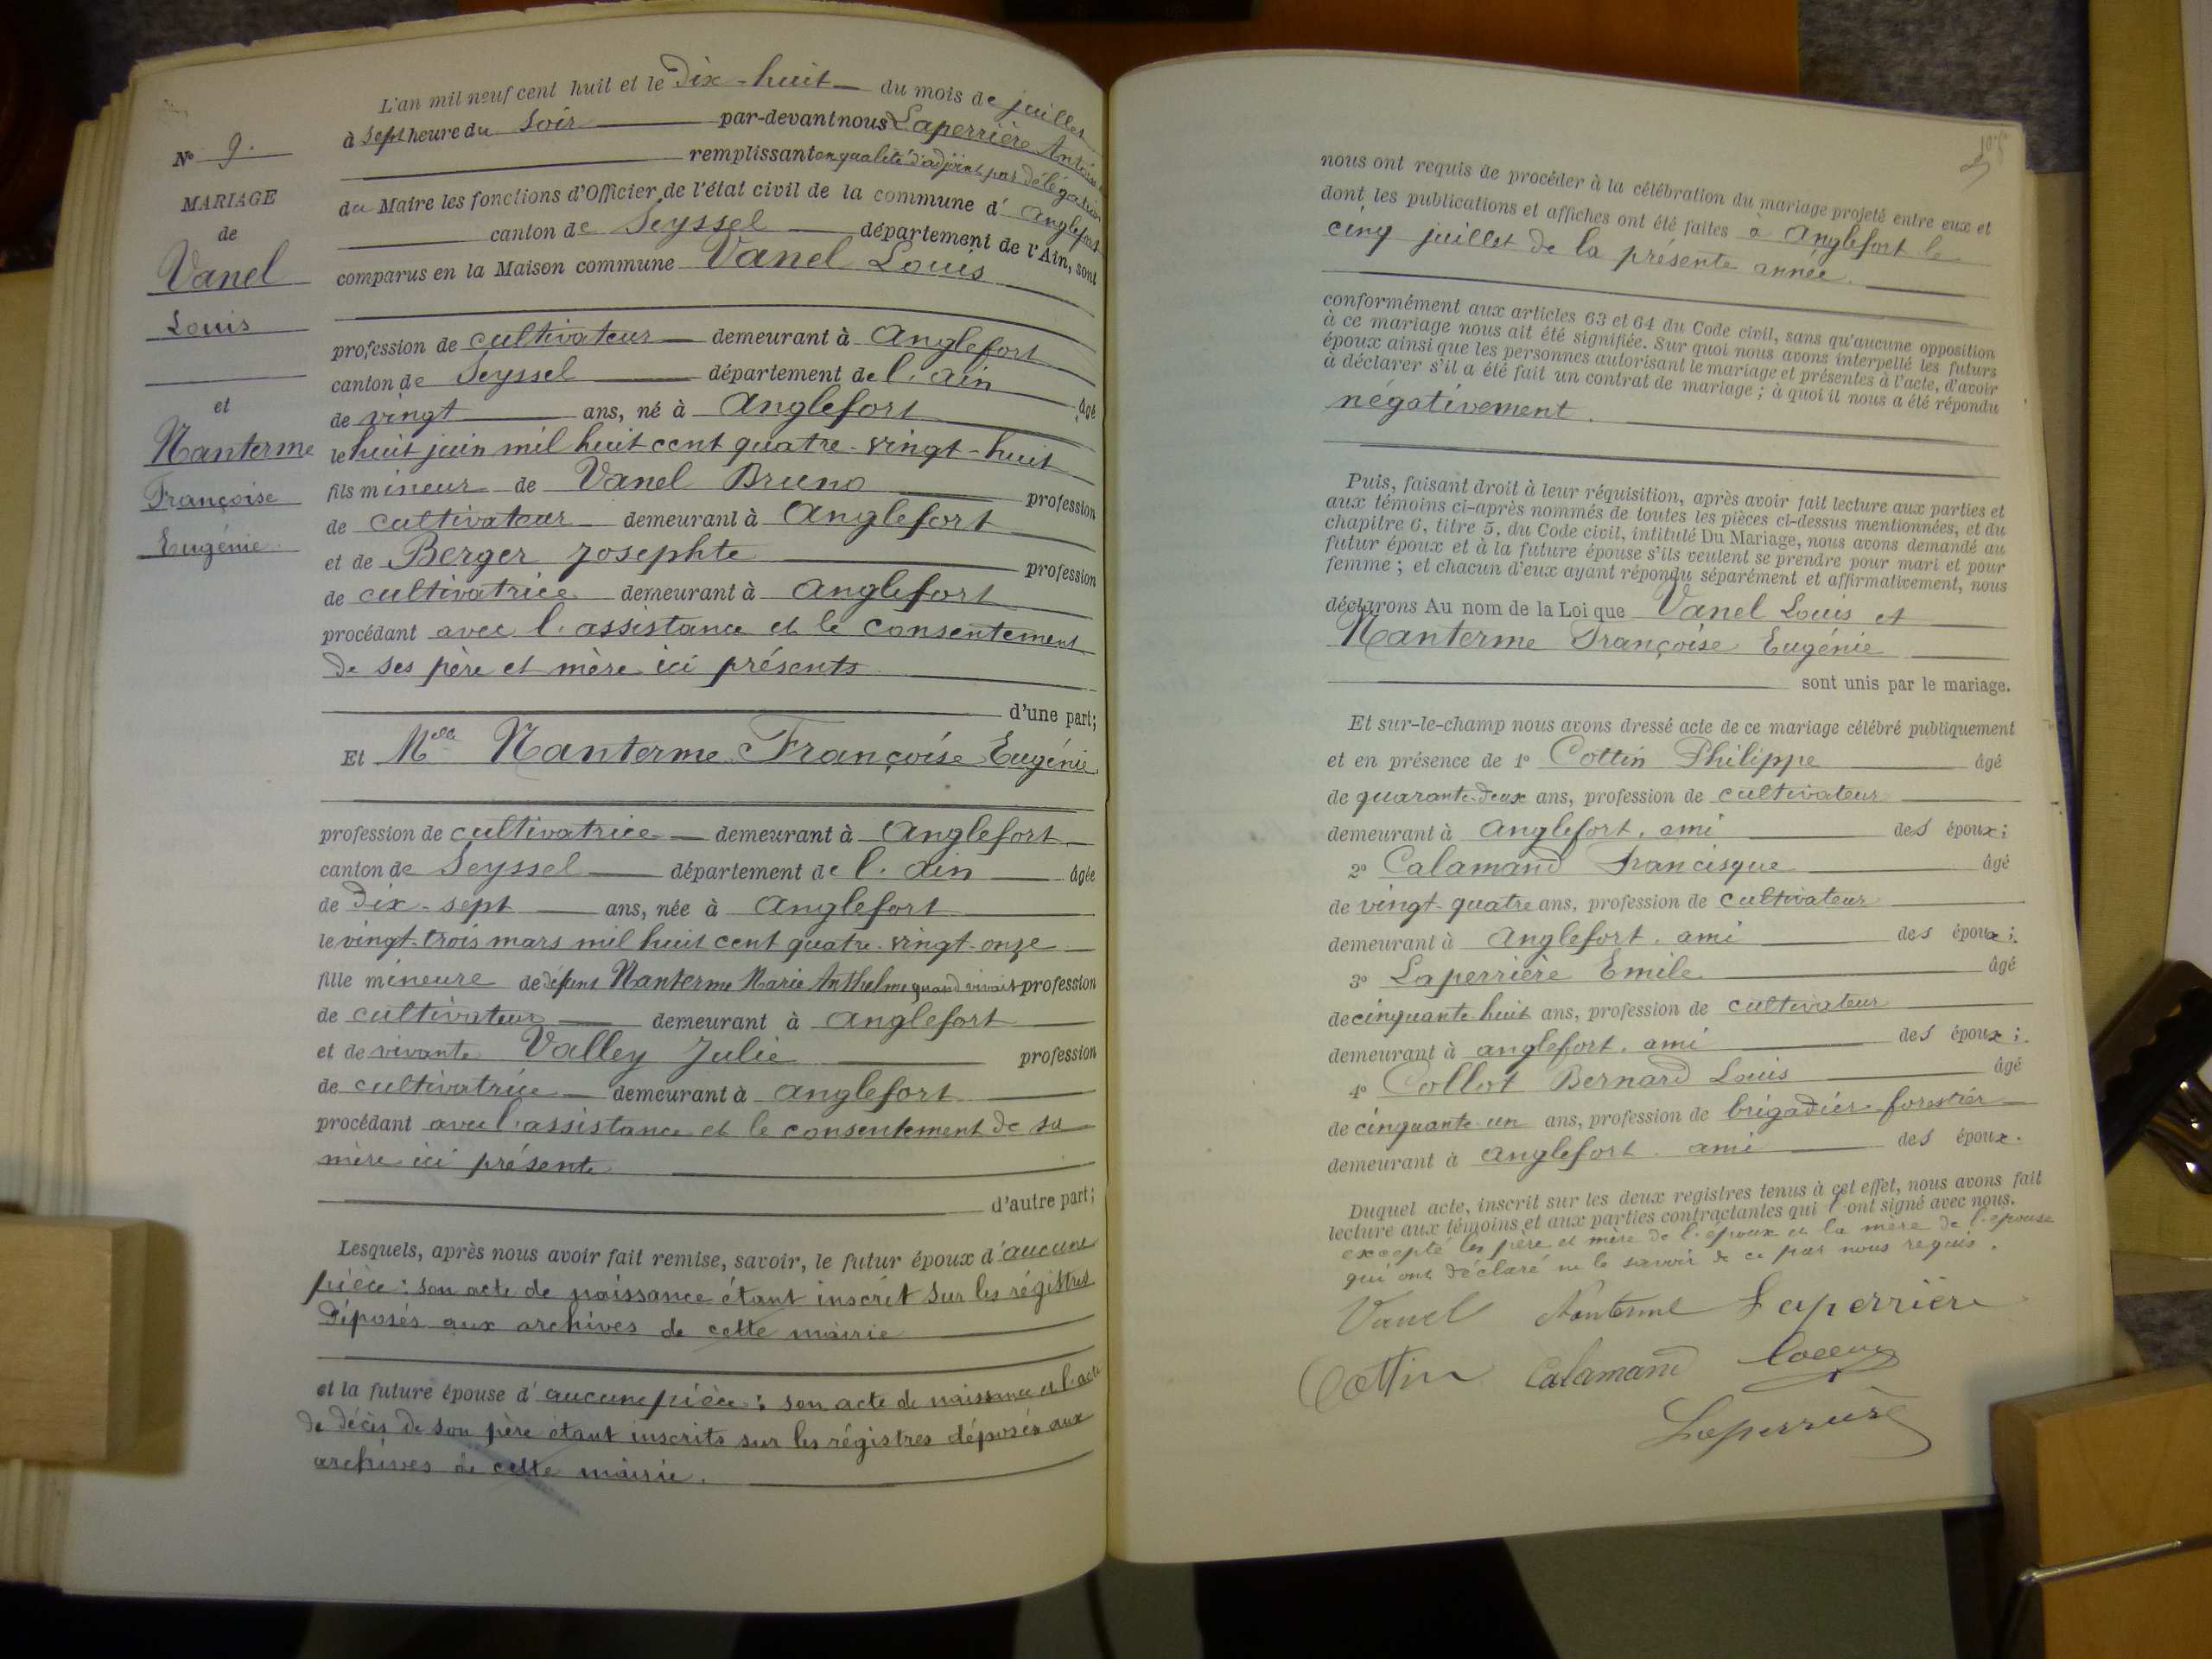 N° 9.
MARIAGE
de
Vanel
Louis
et
Nanterme
Françoise
Eugénie
L'an mil neuf cent huit et le Dix-huit du mois de juillet
à sept heure du Soir par-devant nous Laperrière Antoine
remplissant en qualité d'adjoint par délégation
du Maire les fonctions d'Officier de l'état civil de la commune d' Anglefort
canton de Seyssel département de l'Ain, sont
comparus en la Maison commune Vanel Louis
profession de cultivateur demeurant à Anglefort
canton de Seyssel département de l'Ain âgé
de vingt ans, né à Anglefort
le huit juin mil huit cent quatre-vingt-huit
fils mineur de Vanel Bruno profession
de cultivateur demeurant à Anglefort
et de Berger Josephte profession
de cultivatrice demeurant à Anglefort
procédant avec l'assistance et le consentement
de ses père et mère ici présents
d'une part;
Et Melle Nanterme Françoise Eugénie
profession de cultivatrice demeurant à Anglefort
canton de Seyssel département de l'Ain âgée
de Dix-sept ans, née à Anglefort
le vingt-trois mars mil huit cent quatre-vingt-onze
fille mineure de défunt Nanterme Marie Anthelme quand vivait profession
de cultivateur demeurant à Anglefort
et de vivante Valley Julie profession
de cultivatrice demeurant à Anglefort
procédant avec l'assistance et le consentement de sa
mère ici présente
d'autre part;
Lesquels, après nous avoir fait remise, savoir, le futur époux d'aucune
pièce : son acte de naissance étant inscrit sur les régistres
déposés aux archives de cette mairie
et la future épouse d'aucune pièce : son acte de naissance et l'acte
de décès de son père étant inscrits sur les régistres déposés aux
archives de cette mairie.
nous ont requis de procéder à la célébration du mariage projeté entre eux et
dont les publications et affiches ont été faites à Anglefort le
cinq juillet de la présente année.
conformément aux articles 63 et 64 du Code civil, sans qu'aucune opposition
à ce mariage nous ait été signifiée. Sur quoi nous avons interpellé les futurs
époux ainsi que les personnes autorisant le mariage et présentes à l'acte, d'avoir
à déclarer s'il a été fait un contrat de mariage ; à quoi il nous a été répondu
négativement.
Puis, faisant droit à leur réquisition, après avoir fait lecture aux parties et
aux témoins ci-après nommés de toutes les pièces ci-dessus mentionnées, et du
chapitre 6, titre 5, du Code civil, intitulé Du Mariage, nous avons demandé au
futur époux et à la future épouse s'ils veulent se prendre pour mari et pour
femme ; et chacun d'eux ayant répondu séparément et affirmativement, nous
déclarons Au nom de la Loi que Vanel Louis et
Nanterme Françoise Eugénie
sont unis par le mariage.
Et sur-le-champ nous avons dressé acte de ce mariage célébré publiquement
et en présence de 1° Cottin Philippe âgé
de quarante-deux ans, profession de cultivateur
demeurant à Anglefort, ami des époux;
2° Calamand Francisque âgé
de vingt-quatre ans, profession de cultivateur
demeurant à Anglefort, ami des époux;
3° Laperrière Emile âgé
de cinquante-huit ans, profession de cultivateur
demeurant à anglefort, ami des époux;
4° Collot Bernard Louis âgé
de cinquante-un ans, profession de brigadier forestier
demeurant à Anglefort ami des époux.
Duquel acte, inscrit sur les deux registres tenus à cet effet, nous avons fait
lecture aux témoins et aux parties contractantes qui l'ont signé avec nous.
excepté les père et mère de l'époux et la mère de l'épouse
qui ont déclaré ne le savoir de ce par nous requis.
Vanel Nanterme Laperrière
Cottin Calamand
Laperrière